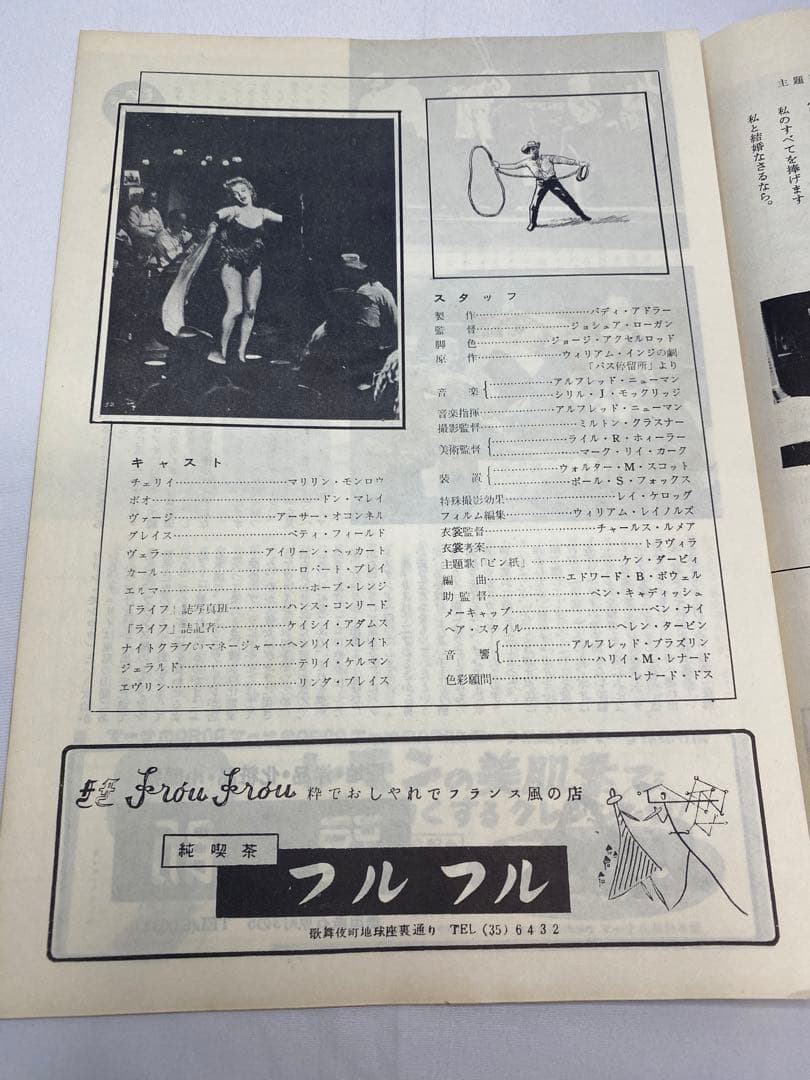 キャスト
チェリイ……………マリリン・モンロウ
ボオ……………ドン・マレイ
ヴァージ……………アーサー・オコンネル
グレイス……………ベティ・フィールド
ヴェラ……………アイリーン・ヘッカート
カール……………ロバート・ブレイ
エルマ……………ホープ・レンジ
「ライフ」誌写真班……………ハンス・コンリード
「ライフ」誌記者……………ケイシイ・アダムス
ナイトクラブのマネージャー…ヘンリイ・スレイト
ジェラルド……………テリイ・ケルマン
エヴリン……………リンダ・ブレイス
スタッフ
製作……………バディ・アドラー
監督……………ジョシュア・ローガン
脚色……………ジョージ・アクセルロッド
原作……………ウィリアム・インジの劇
「バス停留所」より
音楽{……………アルフレッド・ニューマン
……………シリル・J・モックリッジ
音楽指揮……………アルフレッド・ニューマン
撮影監督……………ミルトン・クラスナー
美術監督{……………ライル・R・ホィーラー
……………マーク・リイ・カーク
装置{……………ウォルター・M・スコット
……………ポール・S・フォックス
特殊撮影効果……………レイ・ケロッグ
フィルム編集……………ウィリアム・レイノルズ
衣裳監督……………チャールス・ルメア
衣裳考案……………トラヴィラ
主題歌「ピン紙」……………ケン・ダービィ
編曲……………エドワード・B・ポウェル
助監督……………ベン・キャディッシュ
メーキャップ……………ベン・ナイ
ヘア・スタイル……………ヘレン・タービン
音響{……………アルフレッド・ブラズリン
……………ハリイ・M・レナード
色彩顧問……………レナード・ドス
Frou Frou 粋でおしゃれでフランス風の店
純喫茶
フルフル
歌舞伎町地球座裏通り TEL (35) 6432
主題
私のすべてを捧げます
私と結婚なさるなら。